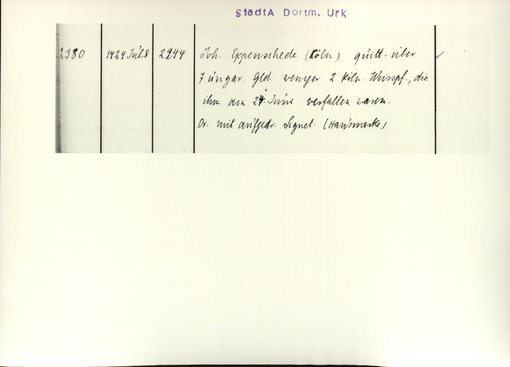 StadtA Dortm. Urk
2380 1424 Juli 8 2944 Joh. Eppenschede (Köln) quitt. über
7 ungar. Gld weniger 2 Köln. Weispf., die
ihm am 24. Juni verfallen waren.
Or. mit aufgedr. Signet. (Hausmarke)